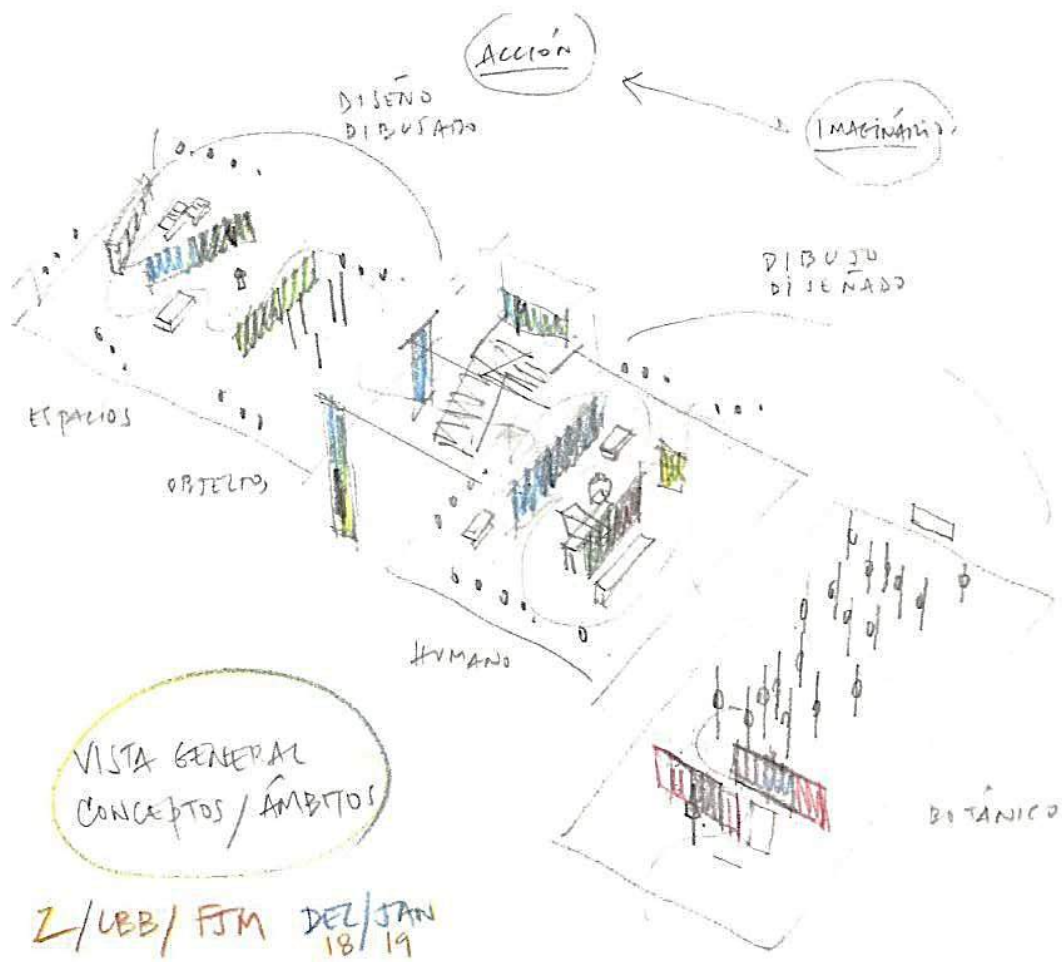 ACCIÓN
IMAGINÁRIO.
DISEÑO
DIBUJADO
DIBUJO
DISEÑADO
ESPACIOS
OBJETOS
HUMANO
BOTÁNICO
VISTA GENERAL
CONCEPTOS / ÁMBITOS
Z/LBB/ FJM DEZ/JAN
18 19